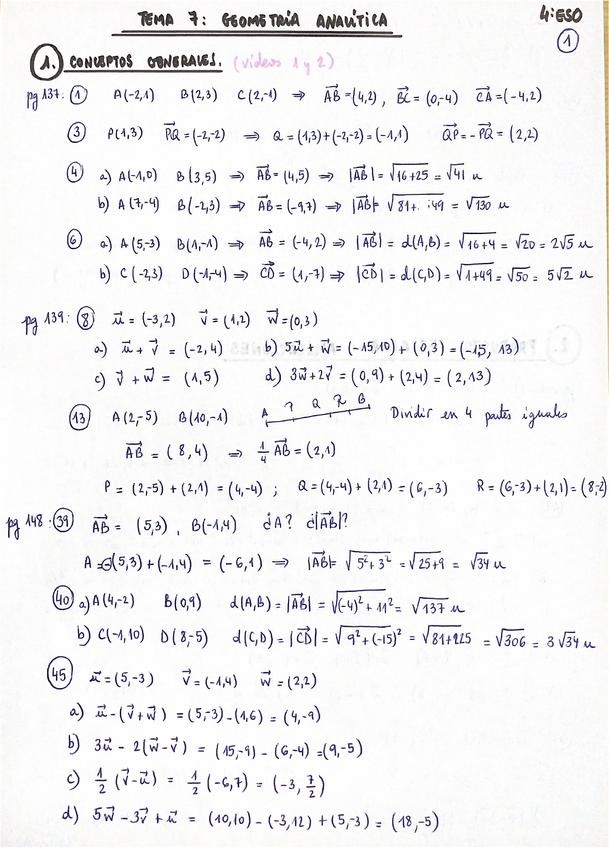 TEMA 7: GEOMETRÍA ANALÍTICA
4ºESO
1
1. CONCEPTOS GENERALES. (videos 1 y 2)
pg 137: ① A(-2,1) B(2,3) C(2,-1) ⇒ AB⃗ = (4,2), BC⃗ = (0,-4) CA⃗ = (-4,2)
③ P(1,3) PQ⃗ = (-2,-2) ⇒ Q = (1,3)+(-2,-2) = (-1,1) QP⃗ = -PQ⃗ = (2,2)
④ a) A(-1,0) B(3,5) ⇒ AB⃗ = (4,5) ⇒ |AB⃗| = √16+25 = √41 u
b) A(7,-4) B(-2,3) ⇒ AB⃗ = (-9,7) ⇒ |AB⃗| = √81+49 = √130 u
⑥ a) A(5,-3) B(1,-1) ⇒ AB⃗ = (-4,2) ⇒ |AB⃗| = d(A,B) = √16+4 = √20 = 2√5 u
b) C(-2,3) D(-1,-4) ⇒ CD⃗ = (1,-7) ⇒ |CD⃗| = d(C,D) = √1+49 = √50 = 5√2 u
pg 139: ⑧ u⃗ = (-3,2) v⃗ = (1,2) w⃗ = (0,3)
a) u⃗ + v⃗ = (-2,4) b) 5u⃗ + w⃗ = (-15,10) + (0,3) = (-15, 13)
c) v⃗ + w⃗ = (1,5) d) 3w⃗+2v⃗ = (0,9) + (2,4) = (2,13)
⑬ A(2,-5) B(10,-1) A P Q R B Dividir en 4 partes iguales
AB⃗ = (8,4) ⇒ 1/4 AB⃗ = (2,1)
P = (2,-5) + (2,1) = (4,-4) ; Q = (4,-4) + (2,1) = (6,-3) R = (6,-3)+(2,1) = (8,-2)
pg 148: ㊴ AB⃗ = (5,3), B(-1,4) ¿A? ¿|AB⃗|?
A = -(5,3) + (-1,4) = (-6,1) ⇒ |AB⃗| = √5²+3² = √25+9 = √34 u
㊵ a) A(4,-2) B(0,9) d(A,B) = |AB⃗| = √(-4)² + 11² = √137 u
b) C(-1,10) D(8,-5) d(C,D) = |CD⃗| = √9²+(-15)² = √81+225 = √306 = 3√34 u
㊺ u⃗ = (5,-3) v⃗ = (-1,4) w⃗ = (2,2)
a) u⃗ - (v⃗ + w⃗) = (5,-3) - (1,6) = (4,-9)
b) 3u⃗ - 2(w⃗ - v⃗) = (15,-9) - (6,-4) = (9,-5)
c) 1/2 (v⃗ - u⃗) = 1/2 (-6,7) = (-3, 7/2)
d) 5w⃗ - 3v⃗ + u⃗ = (10,10) - (-3,12) + (5,-3) = (18,-5)